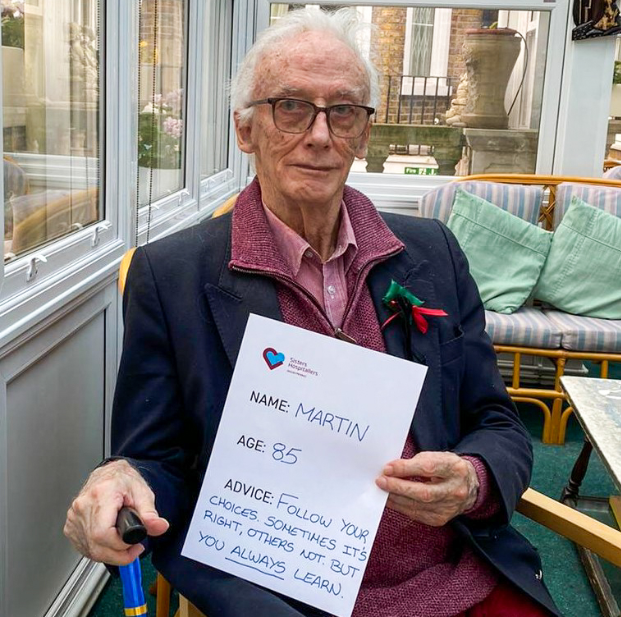 Sisters
Hospitallers
NAME: MARTIN
AGE: 85
ADVICE: FOLLOW YOUR
CHOICES. SOMETIMES IT'S
RIGHT, OTHERS NOT. BUT
YOU ALWAYS LEARN.